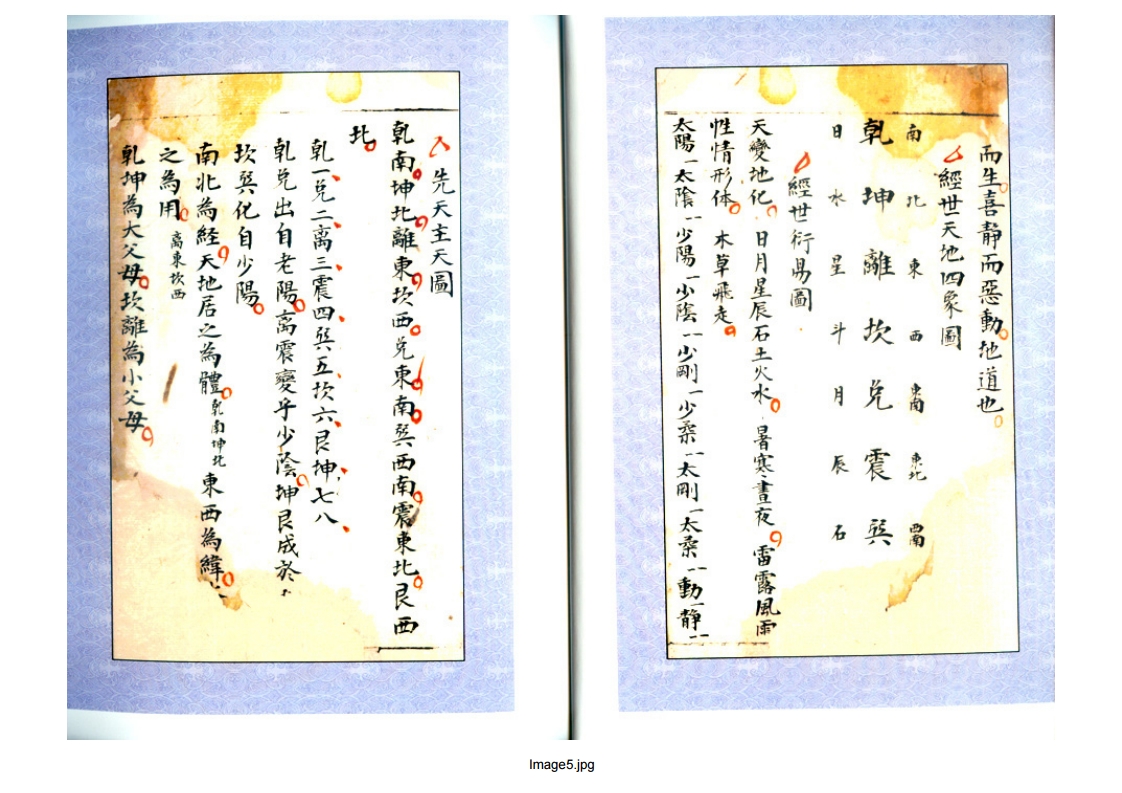 而生喜静而惡動地道也
經世天地四象圖
南 北 東 西 東南 東北 西南
乾 坤 離 坎 兑 震 巽
日 水 星 斗 月 辰 石
經世衍易圖
天變地化 日月星辰石土火水 暑寒晝夜 雷露風雨
性情形体 木草飛走
太陽一太陰一少陽一少陰一少剛一少柔一太剛一太柔一動一静一
先天主天圖
乾南坤北離東坎西兑東南巽西南震東北艮西
北
乾一兑二离三震四巽五坎六艮坤七八
乾兑出自老陽离震變乎少陰坤艮成於
坎巽化自少陽
南北為経天地居之為體乾南坤北東西為緯
之為用离東坎西
乾坤為大父母坎離為小父母
Image5.jpg